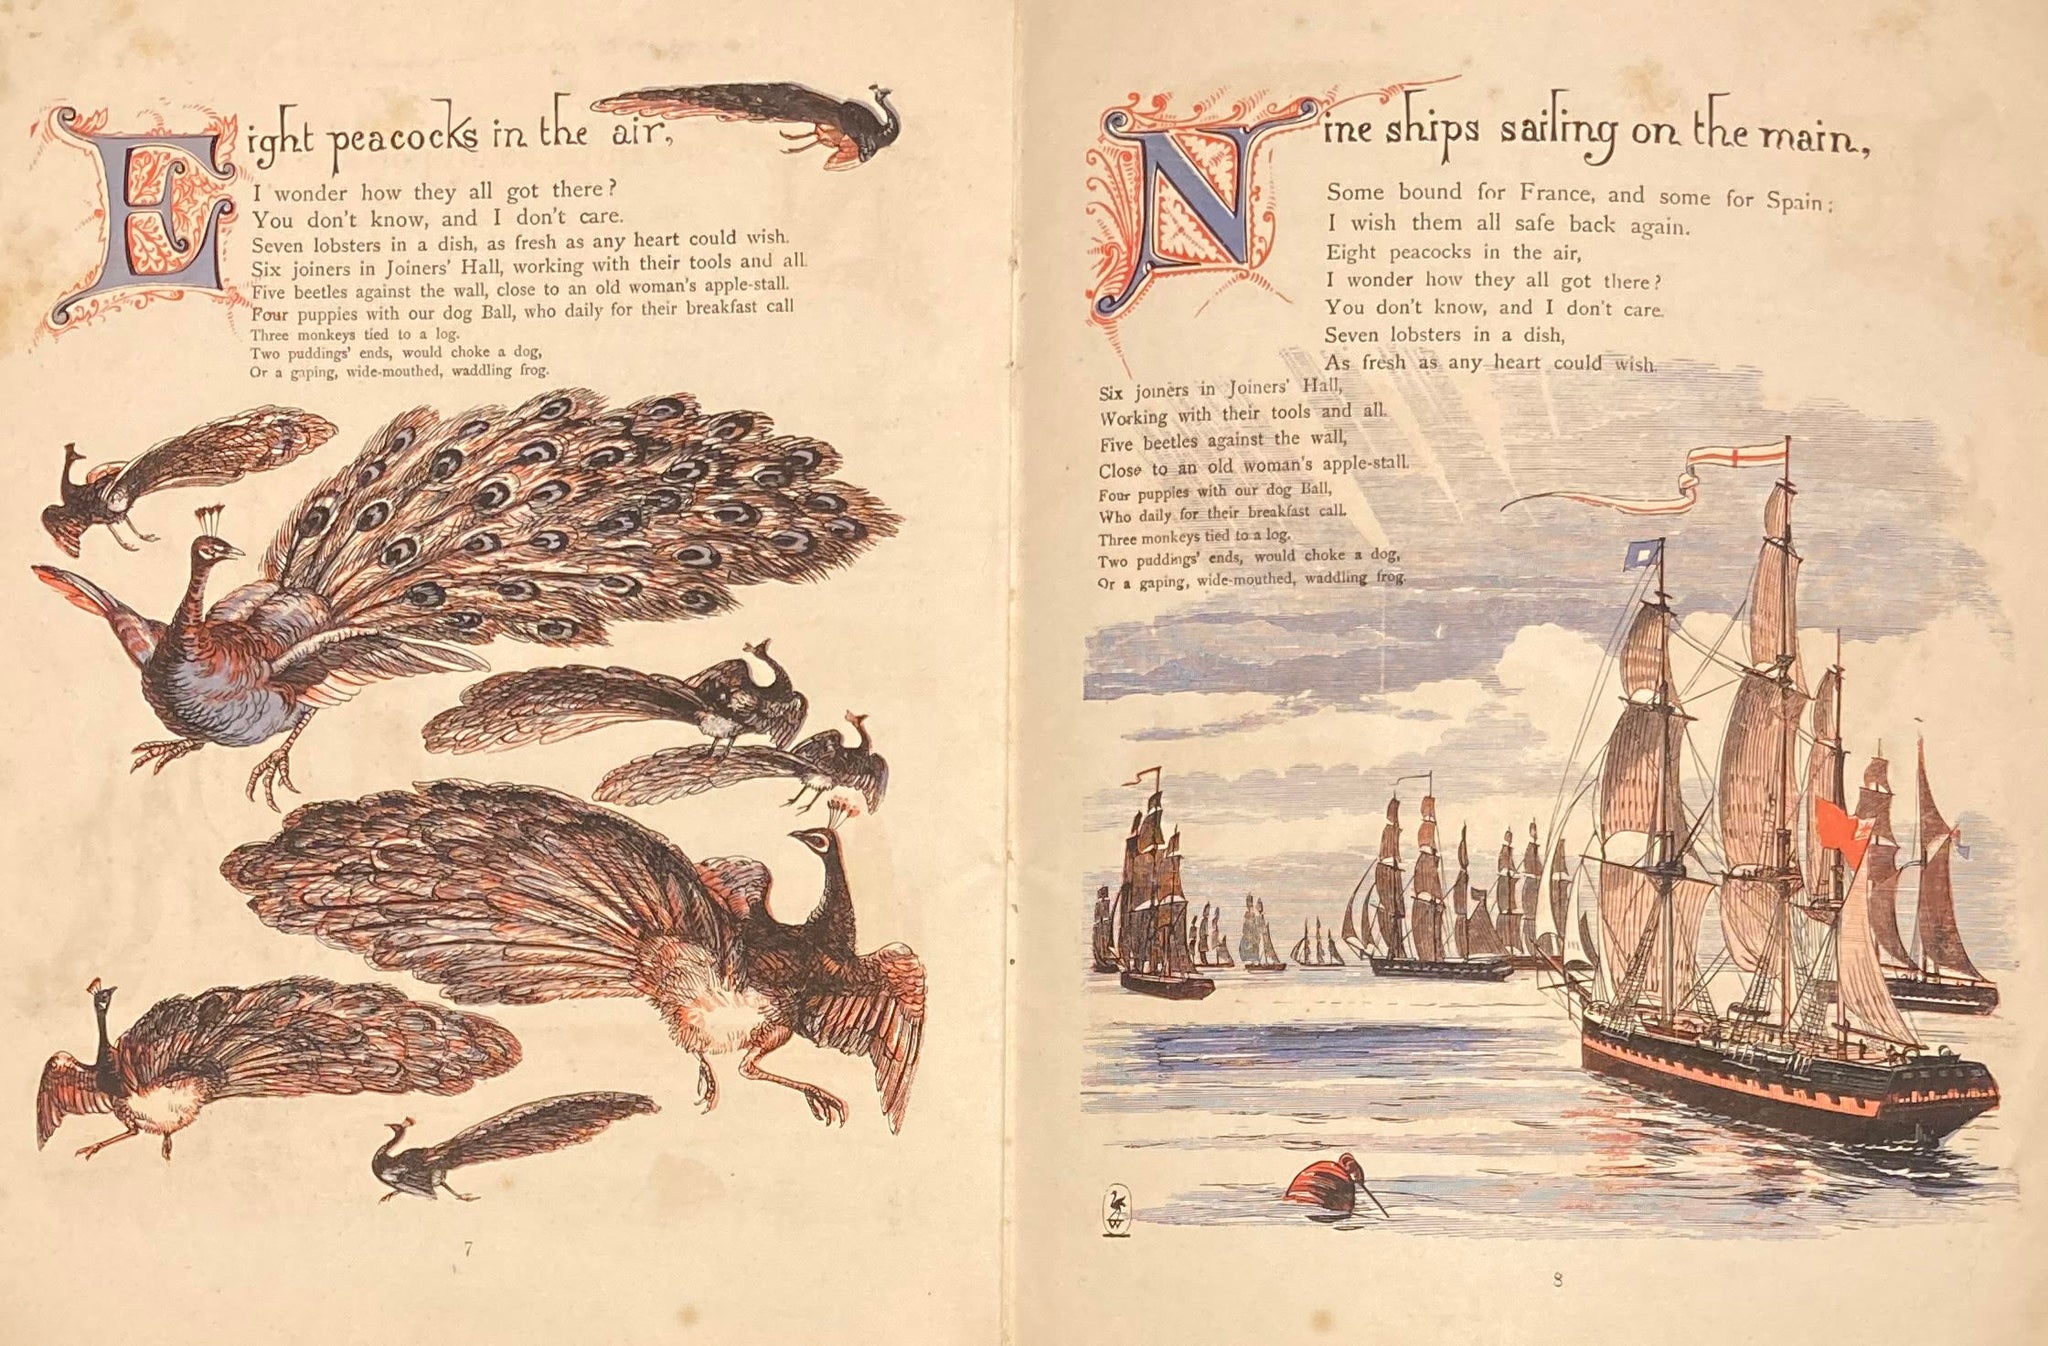 Eight peacocks in the air,
I wonder how they all got there?
You don't know, and I don't care.
Seven lobsters in a dish, as fresh as any heart could wish.
Six joiners in Joiners' Hall, working with their tools and all.
Five beetles against the wall, close to an old woman's apple-stall.
Four puppies with our dog Ball, who daily for their breakfast call
Three monkeys tied to a log.
Two puddings' ends, would choke a dog,
Or a gaping, wide-mouthed, waddling frog.
7
Nine ships sailing on the main,
Some bound for France, and some for Spain;
I wish them all safe back again.
Eight peacocks in the air,
I wonder how they all got there?
You don't know, and I don't care.
Seven lobsters in a dish,
As fresh as any heart could wish.
Six joiners in Joiners' Hall,
Working with their tools and all.
Five beetles against the wall,
Close to an old woman's apple-stall.
Four puppies with our dog Ball,
Who daily for their breakfast call.
Three monkeys tied to a log.
Two puddings' ends, would choke a dog,
Or a gaping, wide-mouthed, waddling frog.
W
8